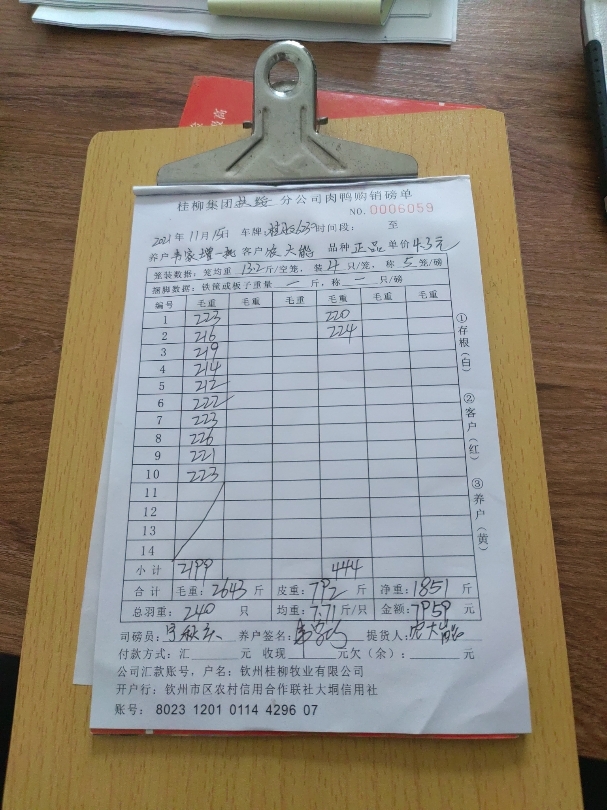 桂柳集团 分公司肉鸭购销磅单
NO.0006059
2021年11月15日 车牌: 时间段: 至
养户 韦家增一批 客户 农大能 品种 正品 单价 4.3元
笼装数据: 笼均重 13.2斤/空笼, 装 4 只/笼, 称 5 笼/磅
捆脚数据: 铁筷或板子重量 一 斤, 称 一 只/磅
编号 毛重 毛重 毛重 毛重 毛重 毛重
1 223 220
2 216 224
3 219
4 214
5 212
6 222
7 223
8 226
9 221
10 223
11
12
13
14
小计 2199 444
合计 毛重: 2643 斤 皮重: 792 斤 净重: 1851 斤
总羽重: 240 只 均重: 7.71斤/只 金额: 7959 元
司磅员: 养户签名: 提货人: 农大能
付款方式: 汇 元 收现 元欠(余): 元
公司汇款账号, 户名: 钦州桂柳牧业有限公司
开户行: 钦州市区农村信用合作联社大垌信用社
账号: 8023 1201 0114 4296 07
①存根(白)
②客户(红)
③养户(黄)